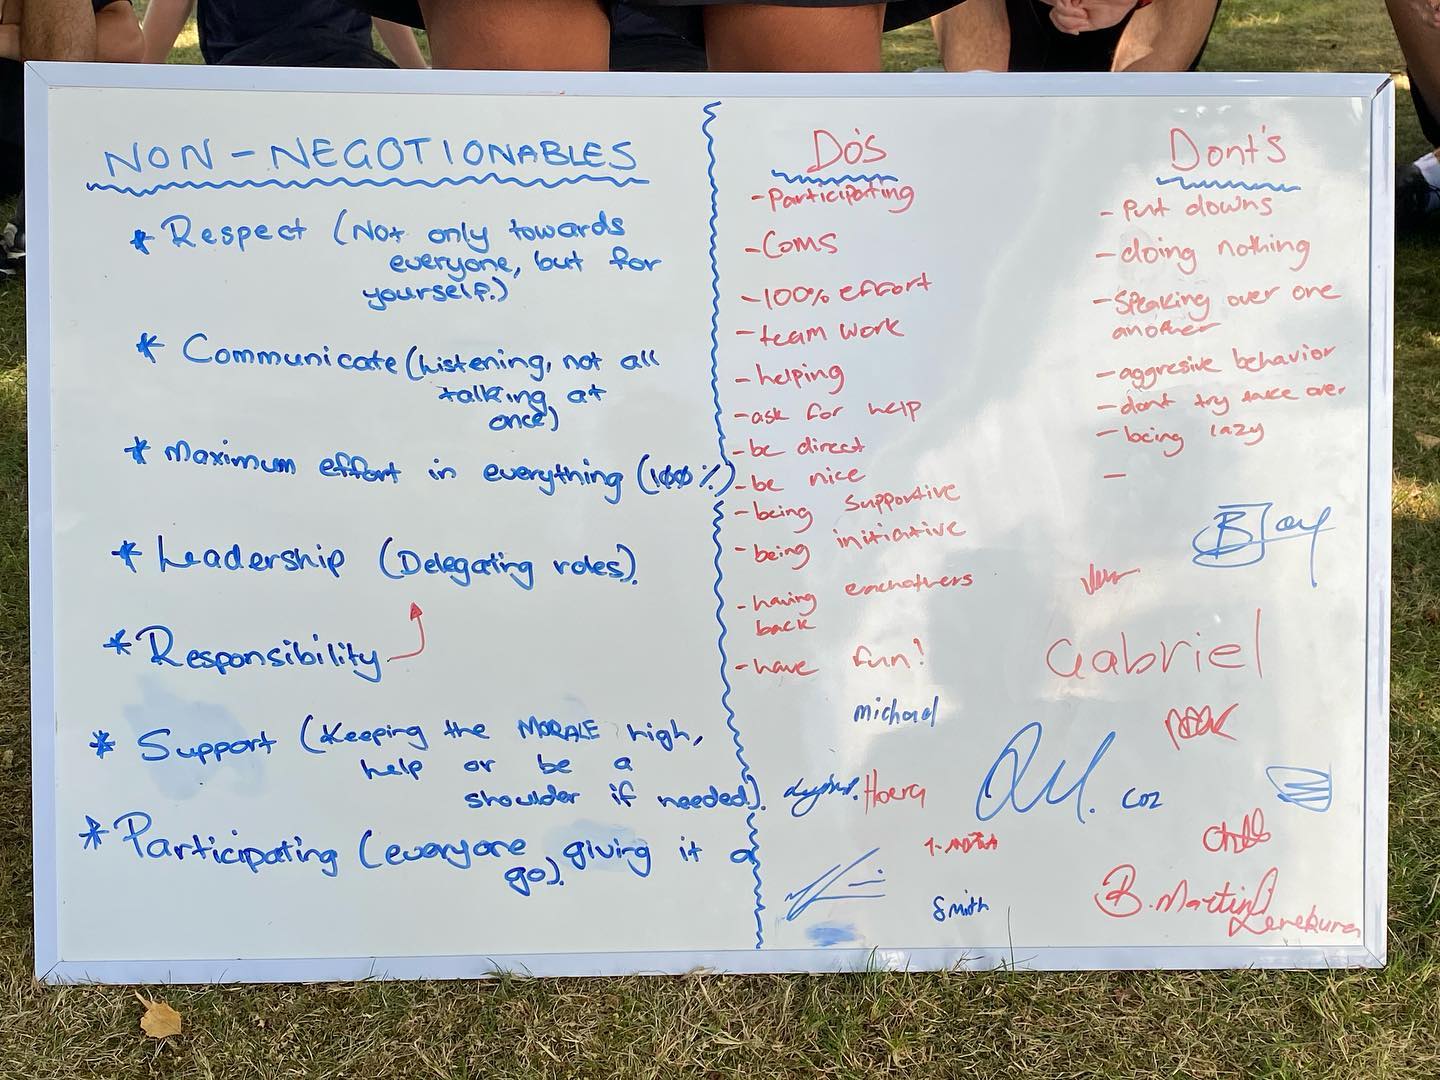 NON-NEGOTIONABLES
* Respect (Not only towards
everyone, but for
yourself.)
* Communicate (Listening, not all
talking at
once)
* Maximum effort in everything (100%)
* Leadership (Delegating roles).
* Responsibility
* Support (Keeping the MORALE high,
help or be a
shoulder if needed).
* Participating (everyone giving it a
go).
Do's
- Participating
- Coms
- 100% effort
- team work
- helping
- ask for help
- be direct
- be nice
- being supportive
- being initiative
- having eachothers
back
- have fun!
Dont's
- Put downs
- doing nothing
- Speaking over one
another
- aggresive behavior
- dont try take over
- being lazy
-
BJay
Gabriel
michael
Hoera
COZ
Smith
B. Martin